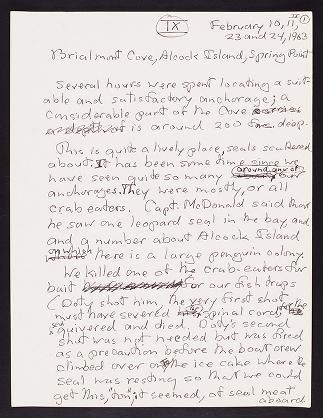 IX
February 10, 11, ①
23 and 24, 1963
Brialmont Cove, Alcock Island, Spring Point
Several hours were spent locating a suit-
able and satisfactory anchorage; a
considerable part of the Cove
is around 200 fms. deep.
This is quite a lively place, seals scattered
about. It has been some time since we
have seen quite so many around any of our
anchorages. They were mostly, or all
crab eaters. Capt. McDonald said that
he saw one leopard seal in the bay, and
and a number about Alcock Island
on which there is a large penguin colony.
We killed one of the crab-eaters for
bait for our fish traps
(Doty shot him, the very first shot
must have severed spinal cord, for the
seal quivered and died. Doty's second
shot was not needed but was fired
as a precaution before the boat crew
climbed over on the ice cake where the
seal was resting so that we could
get this, "ton" it seemed, of seal meat
aboard